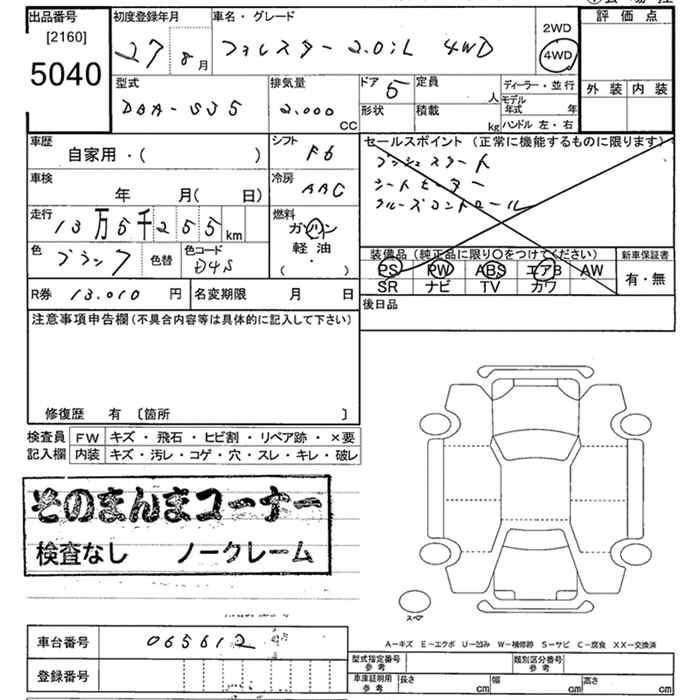 出品番号
[2160]
5040
初度登録年月
27 8月
車名・グレード
フォレスター 2.0i-L 4WD
2WD
4WD
評価点
外装 内装
型式
DBA-SJ5
排気量
2,000
CC
ドア 5
形状
定員
人
積載
kg
ディーラー・並行
モデル年式 年
ハンドル 左・右
車歴
自家用・( )
シフト
F6
車検
年 月( 日)
冷房
AAC
走行
13万5千255km
燃料
ガソリン
軽油
( ・ )
色
ブラック
色替
色コード
D4S
R券 13,010 円
名変期限 月 日
セールスポイント(正常に機能するものに限ります)
プッシュスタート
シートヒーター
クルーズコントロール
装備品(純正品に限り○をつけてください)
PS PW ABS エアB AW
SR ナビ TV カワ
新車保証書
有・無
後日品
注意事項申告欄(不具合内容等は具体的に記入して下さい)
修復歴 有 〔箇所 〕
検査員記入欄
FW キズ・飛石・ヒビ割・リペア跡・×要
内装 キズ・汚レ・コゲ・穴・スレ・キレ・破レ
そのまんまコーナー
検査なし ノークレーム
スペア
A－キズ E－エクボ U－凹み W－補修跡 S－サビ C－腐食 XX－交換済
車台番号 065612
登録番号
型式指定番号 参考
類別区分番号 参考
車庫証明用 参考
長さ cm 幅 cm 高さ cm